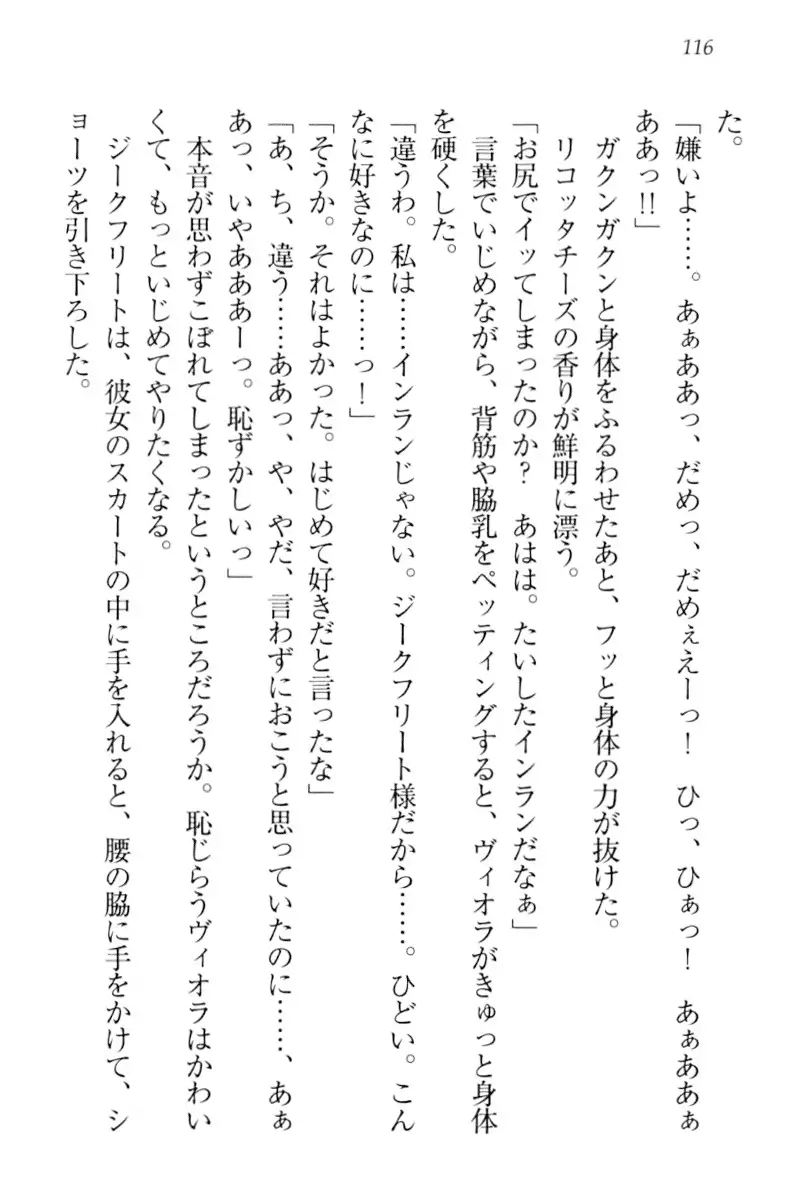 116
た。
「嫌いよ……。あぁああっ、だめっ、だめぇえーっ！　ひっ、ひぁっ！　あぁああぁ
ああっ!!」
　ガクンガクンと身体をふるわせたあと、フッと身体の力が抜けた。
　リコッタチーズの香りが鮮明に漂う。
「お尻でイッてしまったのか？　あはは。たいしたインランだなぁ」
　言葉でいじめながら、背筋や脇乳をペッティングすると、ヴィオラがきゅっと身体
を硬くした。
「違うわ。私は……インランじゃない。ジークフリート様だから……。ひどい。こん
なに好きなのに……っ！」
「そうか。それはよかった。はじめて好きだと言ったな」
「あ、ち、違う……ああっ、や、やだ、言わずにおこうと思っていたのに……、あぁ
あっ、いやああぁーっ。恥ずかしいっ」
　本音が思わずこぼれてしまったというところだろうか。恥じらうヴィオラはかわい
くて、もっといじめてやりたくなる。
　ジークフリートは、彼女のスカートの中に手を入れると、腰の脇に手をかけて、シ
ョーツを引き下ろした。